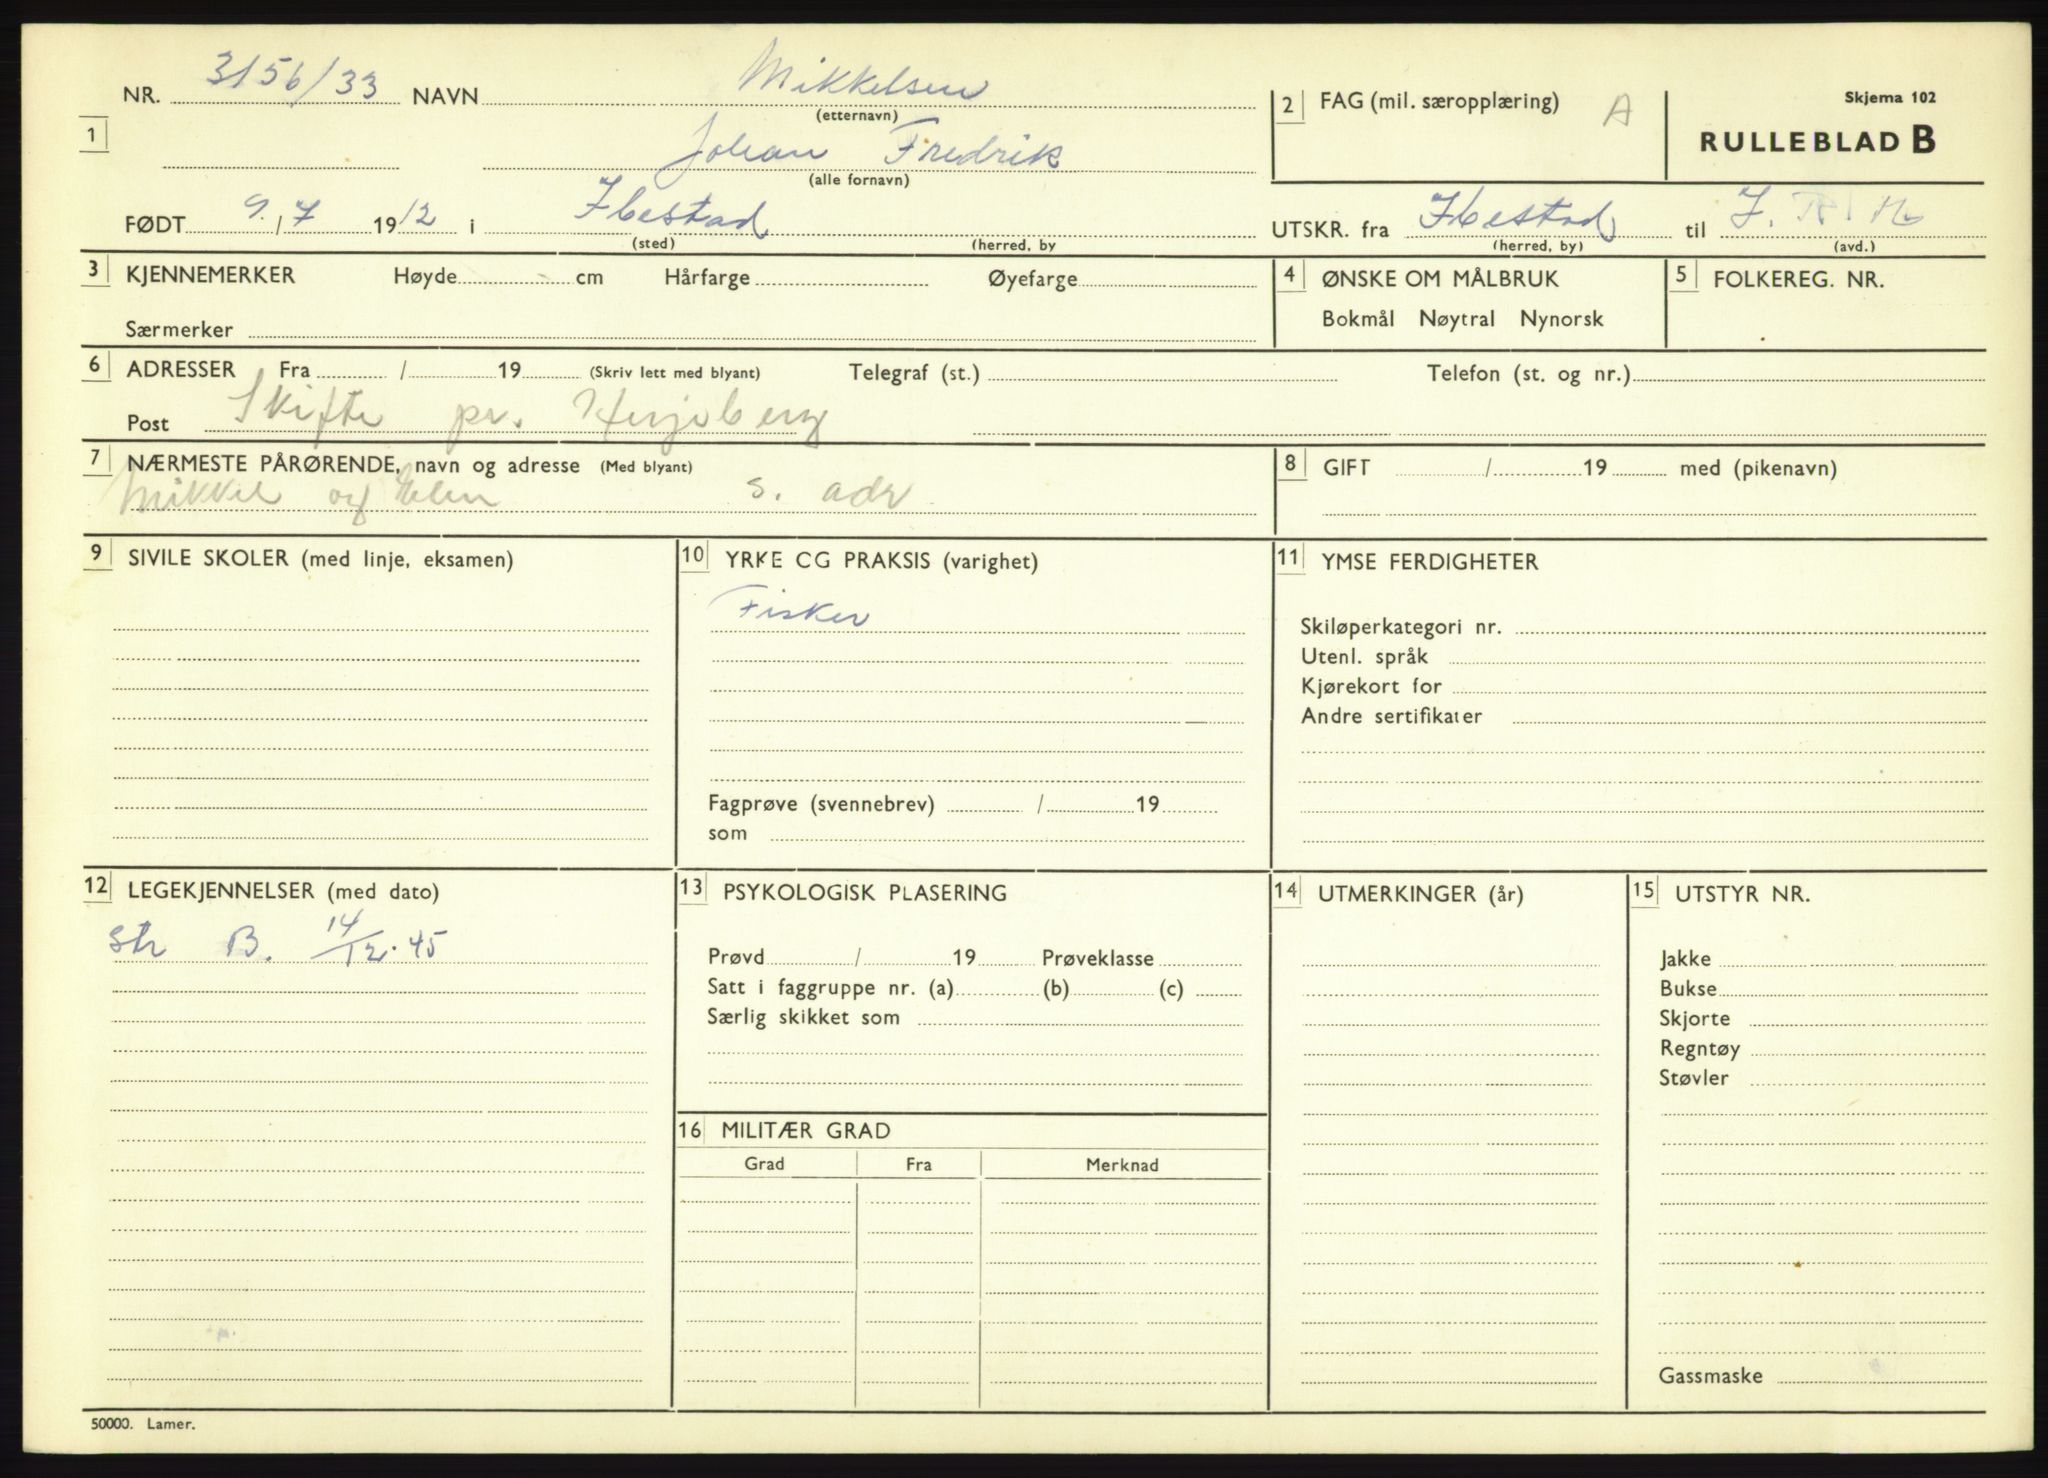 NR. 3156/33 NAVN Mikkelsen
(etternavn)
1
Johan Fredrik
(alle fornavn)
FØDT 9. / 7 1912 i Ibestad
(sted) (herred, by
2 FAG (mil. særopplæring) A
Skjema 102
RULLEBLAD B
UTSKR. fra Ibestad til
(herred, by) (avd.)
3 KJENNEMERKER Høyde cm Hårfarge Øyefarge
Særmerker
4 ØNSKE OM MÅLBRUK
Bokmål Nøytral Nynorsk
5 FOLKEREG. NR.
6 ADRESSER Fra / 19 (Skriv lett med blyant) Telegraf (st.) Telefon (st. og nr.)
Post Skifte pr.
7 NÆRMESTE PÅRØRENDE, navn og adresse (Med blyant)
Mikkel og Elen s. adr
8 GIFT / 19 med (pikenavn)
9 SIVILE SKOLER (med linje, eksamen)
10 YRKE CG PRAKSIS (varighet)
Fisker
Fagprøve (svennebrev) / 19
som
11 YMSE FERDIGHETER
Skiløperkategori nr.
Utenl. språk
Kjørekort for
Andre sertifikater
12 LEGEKJENNELSER (med dato)
Str B. 14/12.45
13 PSYKOLOGISK PLASERING
Prøvd / 19 Prøveklasse
Satt i faggruppe nr. (a) (b) (c)
Særlig skikket som
14 UTMERKINGER (år)
15 UTSTYR NR.
Jakke
Bukse
Skjorte
Regntøy
Støvler
Gassmaske
16 MILITÆR GRAD
Grad Fra Merknad
50000. Lamer.